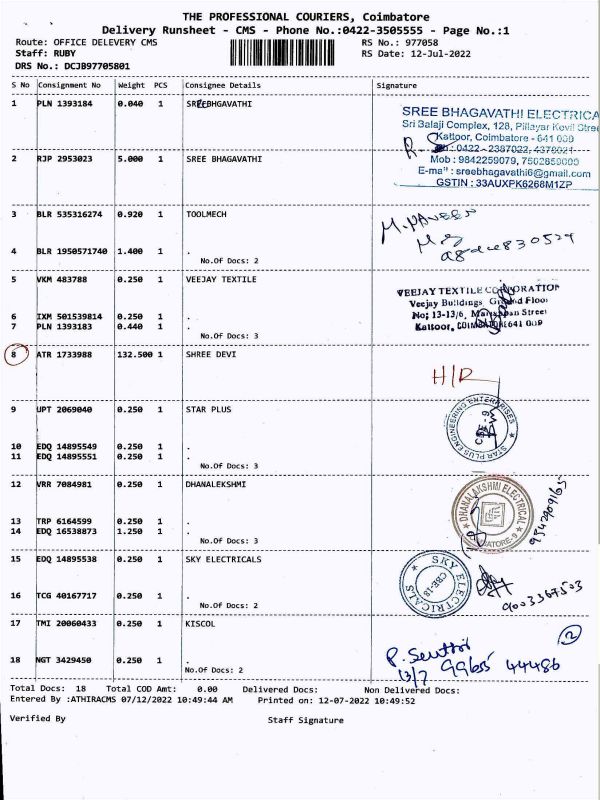 THE PROFESSIONAL COURIERS, Coimbatore
Delivery Runsheet - CMS - Phone No.:0422-3505555 - Page No.:1
Route: OFFICE DELEVERY CMS RS No.: 977058
Staff: RUBY RS Date: 12-Jul-2022
DRS No.: DCJB97705801
S No Consignment No Weight PCS Consignee Details Signature
1 PLN 1393184 0.040 1 SREEBHGAVATHI
SREE BHAGAVATHI ELECTRICA
Sri Balaji Complex, 128, Pillayar Kovil Stree
Kattoor, Coimbatore - 641 009
Ph : 0422 - 2387022, 4378021
2 RJP 2953023 5.000 1 SREE BHAGAVATHI
Mob : 9842259079, 7502859000
E-mail : sreebhagavathi6@gmail.com
GSTIN : 33AUXPK6268M1ZP
3 BLR 535316274 0.920 1 TOOLMECH
4 BLR 1950571740 1.400 1 .
No.Of Docs: 2
5 VKM 483788 0.250 1 VEEJAY TEXTILE
VEEJAY TEXTILE CORPORATION
Veejay Buildings, Ground Floor
No; 13-13/6, Street
Kattoor, COIMBATORE 641 009
6 IXM 501539814 0.250 1 .
7 PLN 1393183 0.440 1 .
No.Of Docs: 3
8 ATR 1733988 132.500 1 SHREE DEVI
H/R
9 UPT 2069040 0.250 1 STAR PLUS
STAR PLUS ENGINEERING ENTERPRISES
CBE-9
10 EDQ 14895549 0.250 1 .
11 EDQ 14895551 0.250 1 .
No.Of Docs: 3
12 VRR 7084981 0.250 1 DHANALEKSHMI
DHANALAKSHMI ELECTRICAL
COIMBATORE-9
13 TRP 6164599 0.250 1 .
14 EDQ 16538873 1.250 1 .
No.Of Docs: 3
15 EDQ 14895538 0.250 1 SKY ELECTRICALS
SKY ELECTRICALS
CBE-18
9003367503
16 TCG 40167717 0.250 1 .
No.Of Docs: 2
17 TMI 20060433 0.250 1 KISCOL
2
18 NGT 3429450 0.250 1 .
13/7 99655 44486
No.Of Docs: 2
Total Docs: 18 Total COD Amt: 0.00 Delivered Docs: Non Delivered Docs:
Entered By :ATHIRACMS 07/12/2022 10:49:44 AM Printed on: 12-07-2022 10:49:52
Verified By Staff Signature